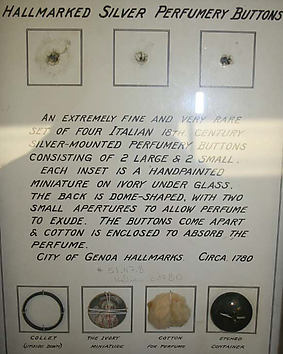 HALLMARKED SILVER PERFUMERY BUTTONS
AN EXTREMELY FINE AND VERY RARE
SET OF FOUR ITALIAN 18TH CENTURY
SILVER-MOUNTED PERFUMERY BUTTONS
CONSISTING OF 2 LARGE & 2 SMALL.
EACH INSET IS A HANDPAINTED
MINIATURE ON IVORY UNDER GLASS.
THE BACK IS DOME-SHAPED, WITH TWO
SMALL APERTURES TO ALLOW PERFUME
TO EXUDE. THE BUTTONS COME APART
& COTTON IS ENCLOSED TO ABSORB THE
PERFUME.
CITY OF GENOA HALLMARKS. CIRCA 1780
COLLET
(UPSIDE DOWN)
THE IVORY
MINIATURE
COTTON
FOR PERFUME
ETCHED
CONTAINER